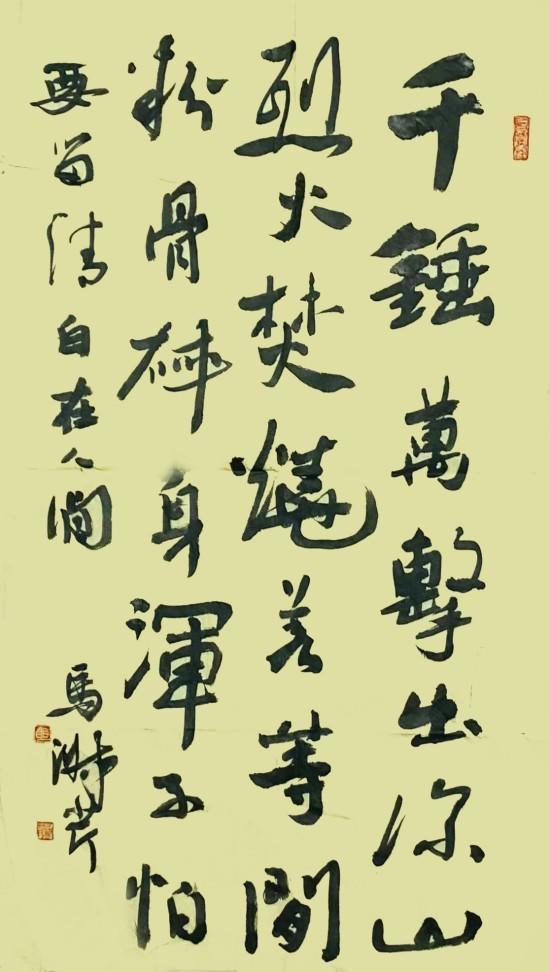 千錘萬擊出深山
烈火焚燒若等閒
粉骨碎身渾不怕
要留清白在人間
馬